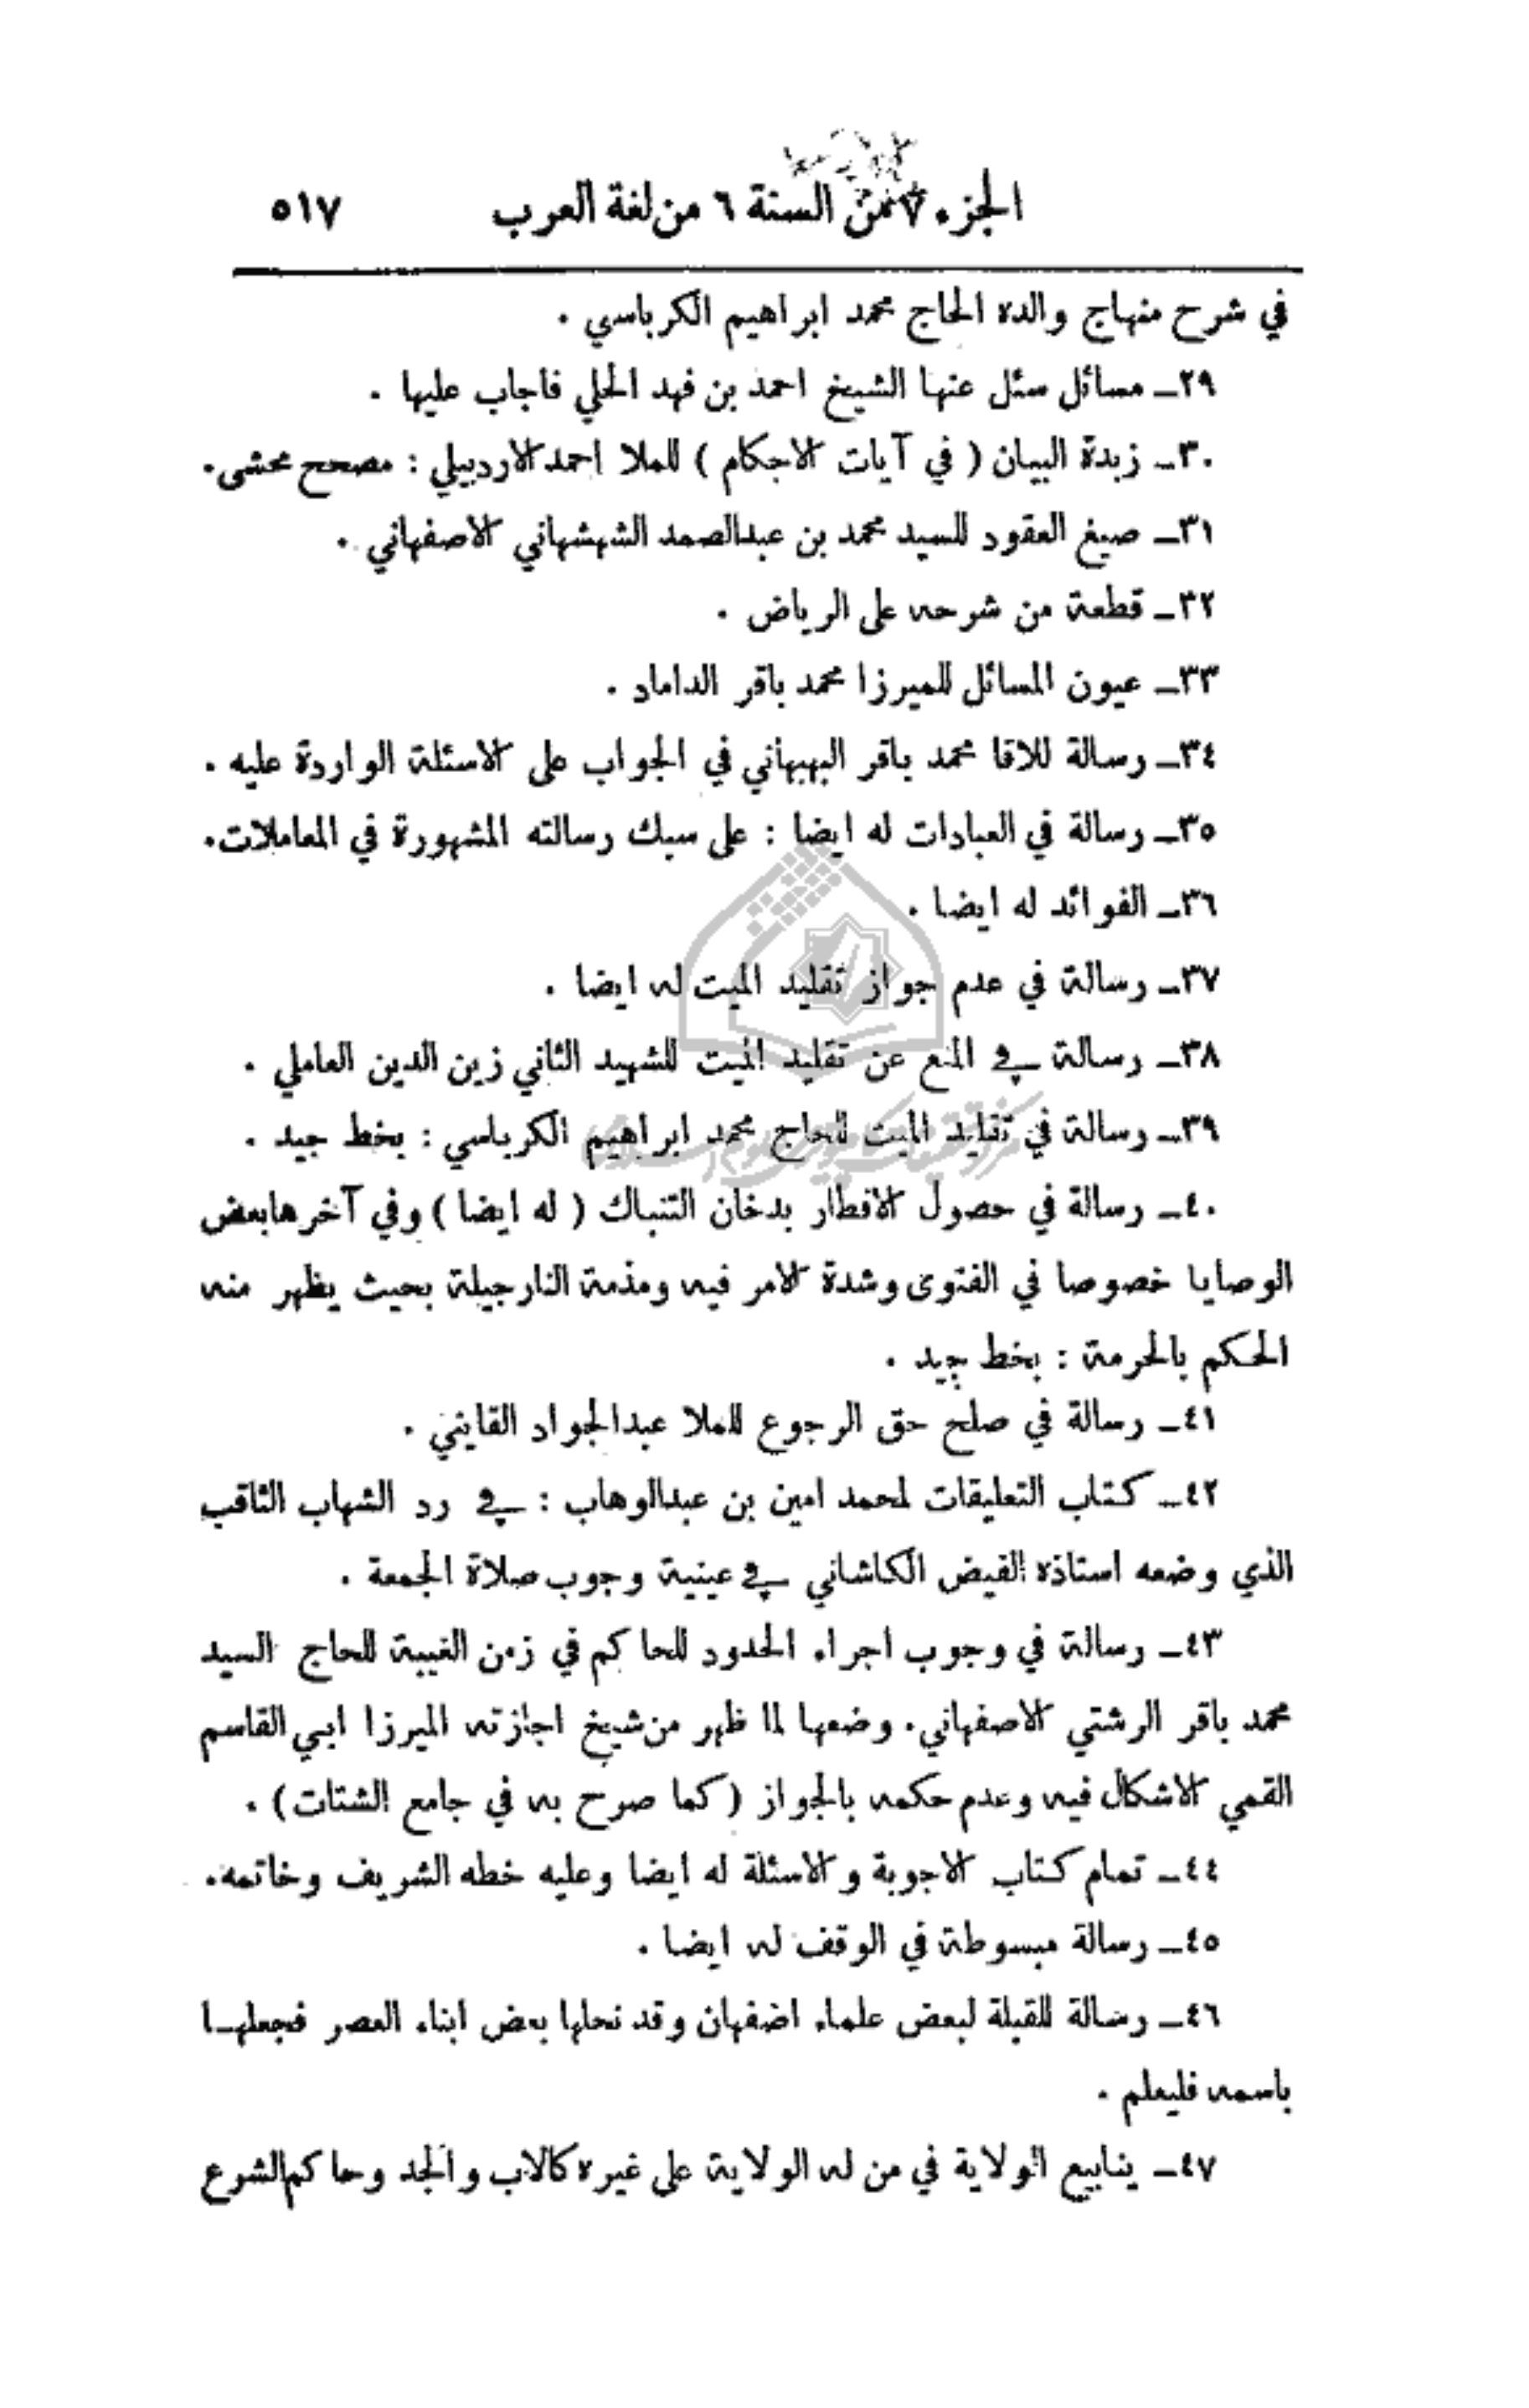 الجزء ٧ من السنة ٦ من لغة العرب ٥١٧
في شرح منهاج والده الحاج محمد ابراهيم الكرباسي .
٢٩ـ مسائل سئل عنها الشيخ احمد بن فهد الحلي فاجاب عليها .
٣٠ـ زبدة البيان ( في آيات الاحكام ) للملا احمد الاردبيلي : مصحح محشى .
٣١ـ صيغ العقود للسيد محمد بن عبدالصمد الشهشهاني الاصفهاني .
٣٢ـ قطعة من شرحه على الرياض .
٣٣ـ عيون المسائل للميرزا محمد باقر الداماد .
٣٤ـ رسالة للاقا محمد باقر البهبهاني في الجواب على الاسئلة الواردة عليه .
٣٥ـ رسالة في العبادات له ايضا : على سبك رسالته المشهورة في المعاملات .
٣٦ـ الفوائد له ايضا .
٣٧ـ رسالة في عدم جواز تقليد الميت له ايضا .
٣٨ـ رسالة في المنع عن تقليد الميت للشهيد الثاني زين الدين العاملي .
٣٩ـ رسالة في تقليد الميت للحاج محمد ابراهيم الكرباسي : بخط جيد .
٤٠ـ رسالة في حصول الافطار بدخان التنباك ( له ايضا ) وفي آخرها بعض
الوصايا خصوصا في الفتوى وشدة الامر فيه ومذمة النارجيلة بحيث يظهر منه
الحكم بالحرمة : بخط جيد .
٤١ـ رسالة في صلح حق الرجوع للملا عبدالجواد القايني .
٤٢ـ كتاب التعليقات لمحمد امين بن عبدالوهاب : في رد الشهاب الثاقب
الذي وضعه استاذه الفيض الكاشاني في عينية وجوب صلاة الجمعة .
٤٣ـ رسالة في وجوب اجراء الحدود للحاكم في زمن الغيبة للحاج السيد
محمد باقر الرشتي الاصفهاني . وضعها لما ظهر من شيخ اجازته الميرزا ابي القاسم
القمي الاشكال فيه وعدم حكمه بالجواز (كما صرح به في جامع الشتات) .
٤٤ـ تمام كتاب الاجوبة والاسئلة له ايضا وعليه خطه الشريف وخاتمه .
٤٥ـ رسالة مبسوطة في الوقف له ايضا .
٤٦ـ رسالة للقبلة لبعض علماء اصفهان وقد نحلها بعض ابناء العصر فجعلهـا
باسمه فليعلم .
٤٧ـ ينابيع الولاية في من له الولاية على غيره كالاب والجد وحاكم الشرع